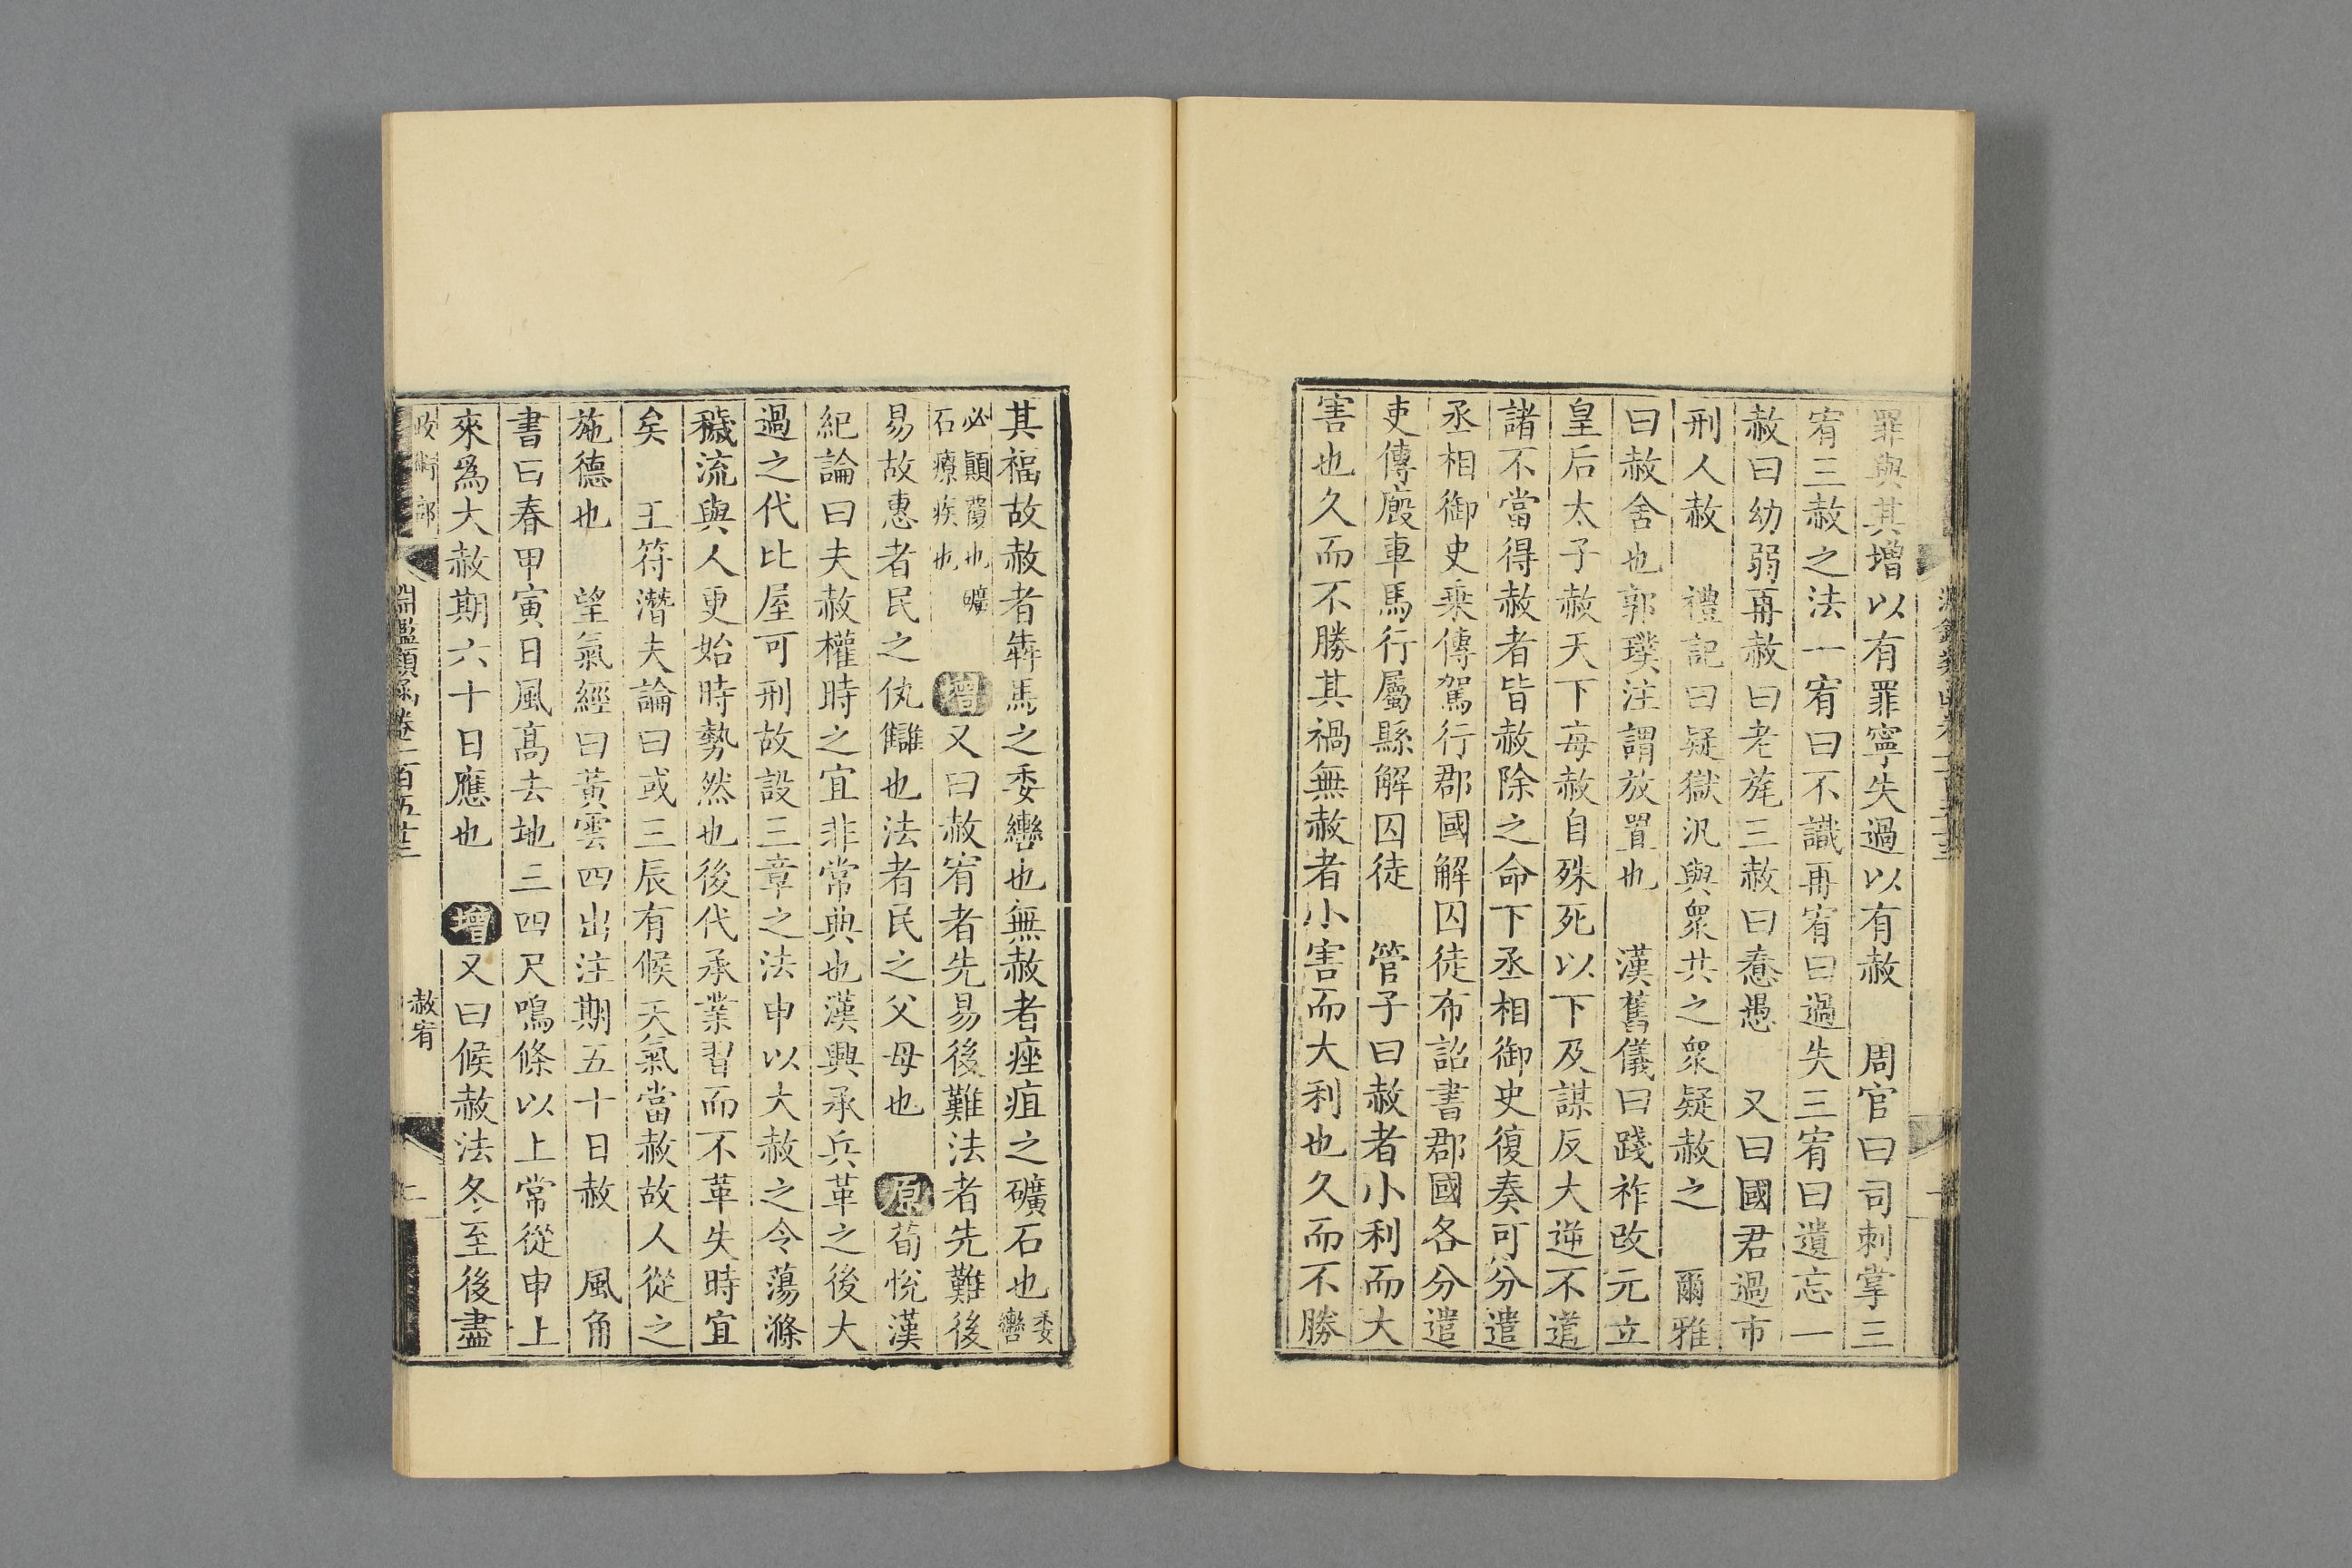 罪與其增以有罪寧失過以有赦　周官曰司刺掌三
宥三赦之法一宥曰不識再宥曰過失三宥曰遺忘一
赦曰幼弱再赦曰老旄三赦曰惷愚　又曰國君過市
刑人赦　禮記曰疑獄汎與衆共之衆疑赦之　爾雅
曰赦舍也郭璞注謂放置也　漢舊儀曰踐祚改元立
皇后太子赦天下每赦自殊死以下及謀反大逆不道
諸不當得赦者皆赦除之命下丞相御史復奏可分遣
丞相御史乘傳駕行郡國解囚徒布詔書郡國各分遣
吏傳廄車馬行屬縣解囚徒　管子曰赦者小利而大
害也久而不勝其禍無赦者小害而大利也久而不勝
其福故赦者犇馬之委轡也無赦者痤疽之礦石也委轡
必顛覆也礦石療疾也　增又曰赦宥者先易後難法者先難後
易故惠者民之仇讎也法者民之父母也　原荀悅漢
紀論曰夫赦權時之宜非常典也漢興承兵革之後大
過之代比屋可刑故設三章之法申以大赦之令蕩滌
穢流與人更始時勢然也後代承業習而不革失時宜
矣　王符潛夫論曰或三辰有候天氣當赦故人從之
施德也　望氣經曰黃雲四出注期五十日赦　風角
書曰春甲寅日風高去地三四尺鳴條以上常從申上
來爲大赦期六十日應也　增又曰候赦法冬至後盡
政術部　淵鑑類函卷一百五十三　赦宥　二